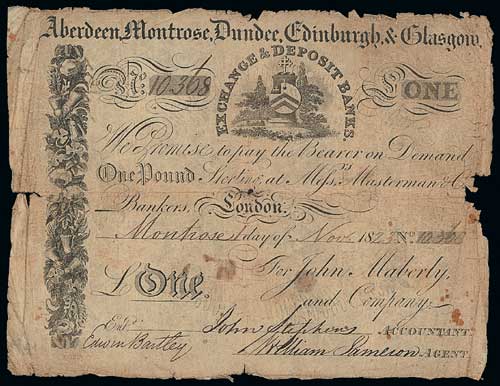 Aberdeen, Montrose, Dundee, Edinburgh, & Glasgow.
EXCHANGE & DEPOSIT BANKS.
No. 10,368 £ONE
We Promise to pay the Bearer on Demand
One Pound Sterling at Messrs. Masterman & Co.
Bankers, London.
Montrose 1 day of Novr. 1825 No. 10368
£One. For John Maberly,
and Company
Entd. John Stephens ACCOUNTANT.
Edwin Bartley William Jameson AGENT.